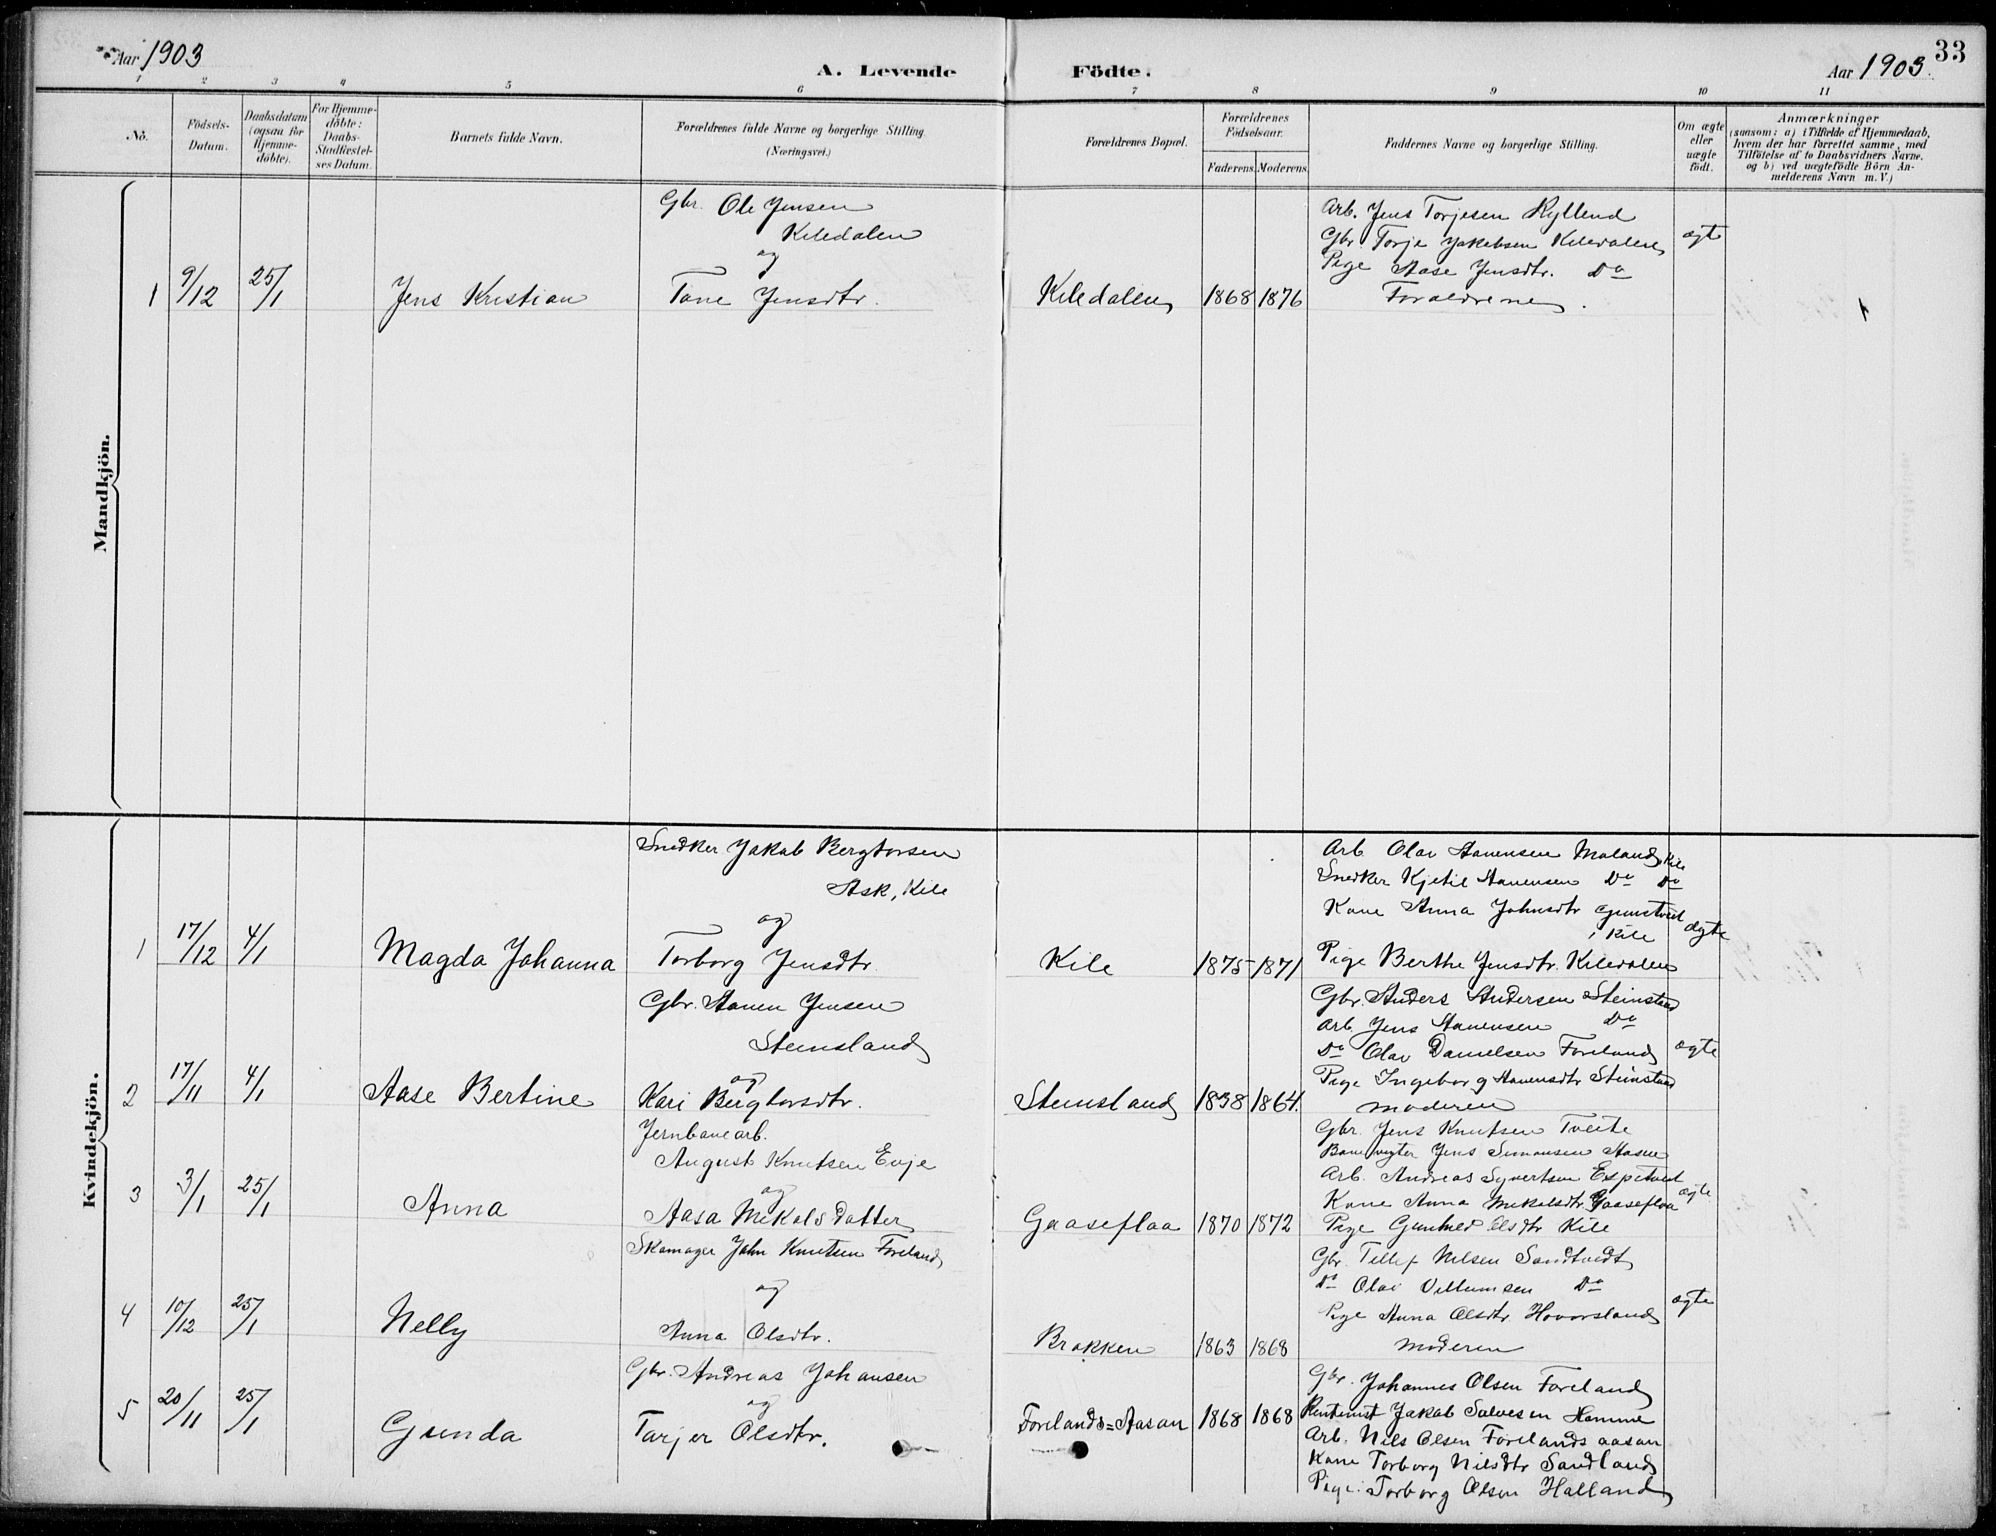 Aar 1903
A. Levende Födte.
Aar 1903.
33
1 2 3 4 5 6 7 8 9 10 11
No.
Födsels-Datum.
Daabsdatum (ogsaa for Hjemme-döbte).
For Hjemme-döbte: Daabs-Stadfæstel-ses Datum.
Barnets fulde Navn.
Forældrenes fulde Navne og borgerlige Stilling. (Næringsvei.)
Forældrenes Bopæl.
Forældrenes Födselsaar.
Faderens. Moderens.
Faddernes Navne og borgerlige Stilling.
Om ægte eller uægte födt.
Anmærkninger
(saasom: a) i Tilfælde af Hjemmedaab,
hvem der har forrettet samme, med
Tilföielse af to Daabsvidners Navne.
og b) ved uægtefödte Börn An-
melderens Navn m. V.)
Mandkjön.
Gbr. Ole Jensen
Kiledalen
og
1 9/12 25/1 Jens Kristian Tone Jensdtr. Kiledalen 1868 1876
Arb. Jens Torjesen
Gbr. Torje Jakobsen Kiledalen ægte
Pige Aase Jensdtr. Do
Forældrene.
1
Kvindekjön.
Snedker Jakob Bergtorsen
Ask, Kile
og
1 17/12 4/1 Magda Johanna Torborg Jensdtr. Kile 1875 1871
Arb. Olav Aanensen Moland, Kile
Snedker Kjetil Aanensen Do Do
Kone Anna Johnsdtr
i Kile ægte
Pige Berthe Jensdtr. Kiledalen
Gbr. Aanen Jensen
Stemsland
og
2 17/11 4/1 Aase Bertine Kari Bergtorsdtr. Stemsland 1838 1864.
Gbr. Anders Andersen
Arb. Jens Aanensen Do
Do Olav Danielsen Foreland ægte
Pige Ingeborg Aanensdtr
moderen
Jernbanearb.
August Knutsen Evje
og
3 3/1 25/1 Anna Aasa Mikalsdatter Gaaseflaa 1870 1872
Gbr. Jens Knutsen Tveite
Banevogter Jens Simonsen
Arb. Andreas Syvertsen
Kone Anna Mikalsdtr. Gaaseflaa ægte
Pige Gunhild Olsdtr Kile
Skomager John Knutsen Foreland
og
4 10/12 25/1 Nelly Anna Olsdtr. Brokken 1863 1868
Gbr. Tellef Nilsen Sandtvedt
Do Olai Villumsen Do
Pige Anna Olsdtr. Hovorsland ægte
moderen
Gbr. Andreas Johansen
og
5 20/11 25/1 Gunda Tarjer Olsdtr. Forelands=Aasan 1868 1868
Gbr. Johannes Olsen Foreland
Rentenist Jakob Salvesen Homme
Arb. Nils Olsen Forelandsaasan
Kone Torborg Nilsdtr Sandland
Pige. Torborg Olsen Halland